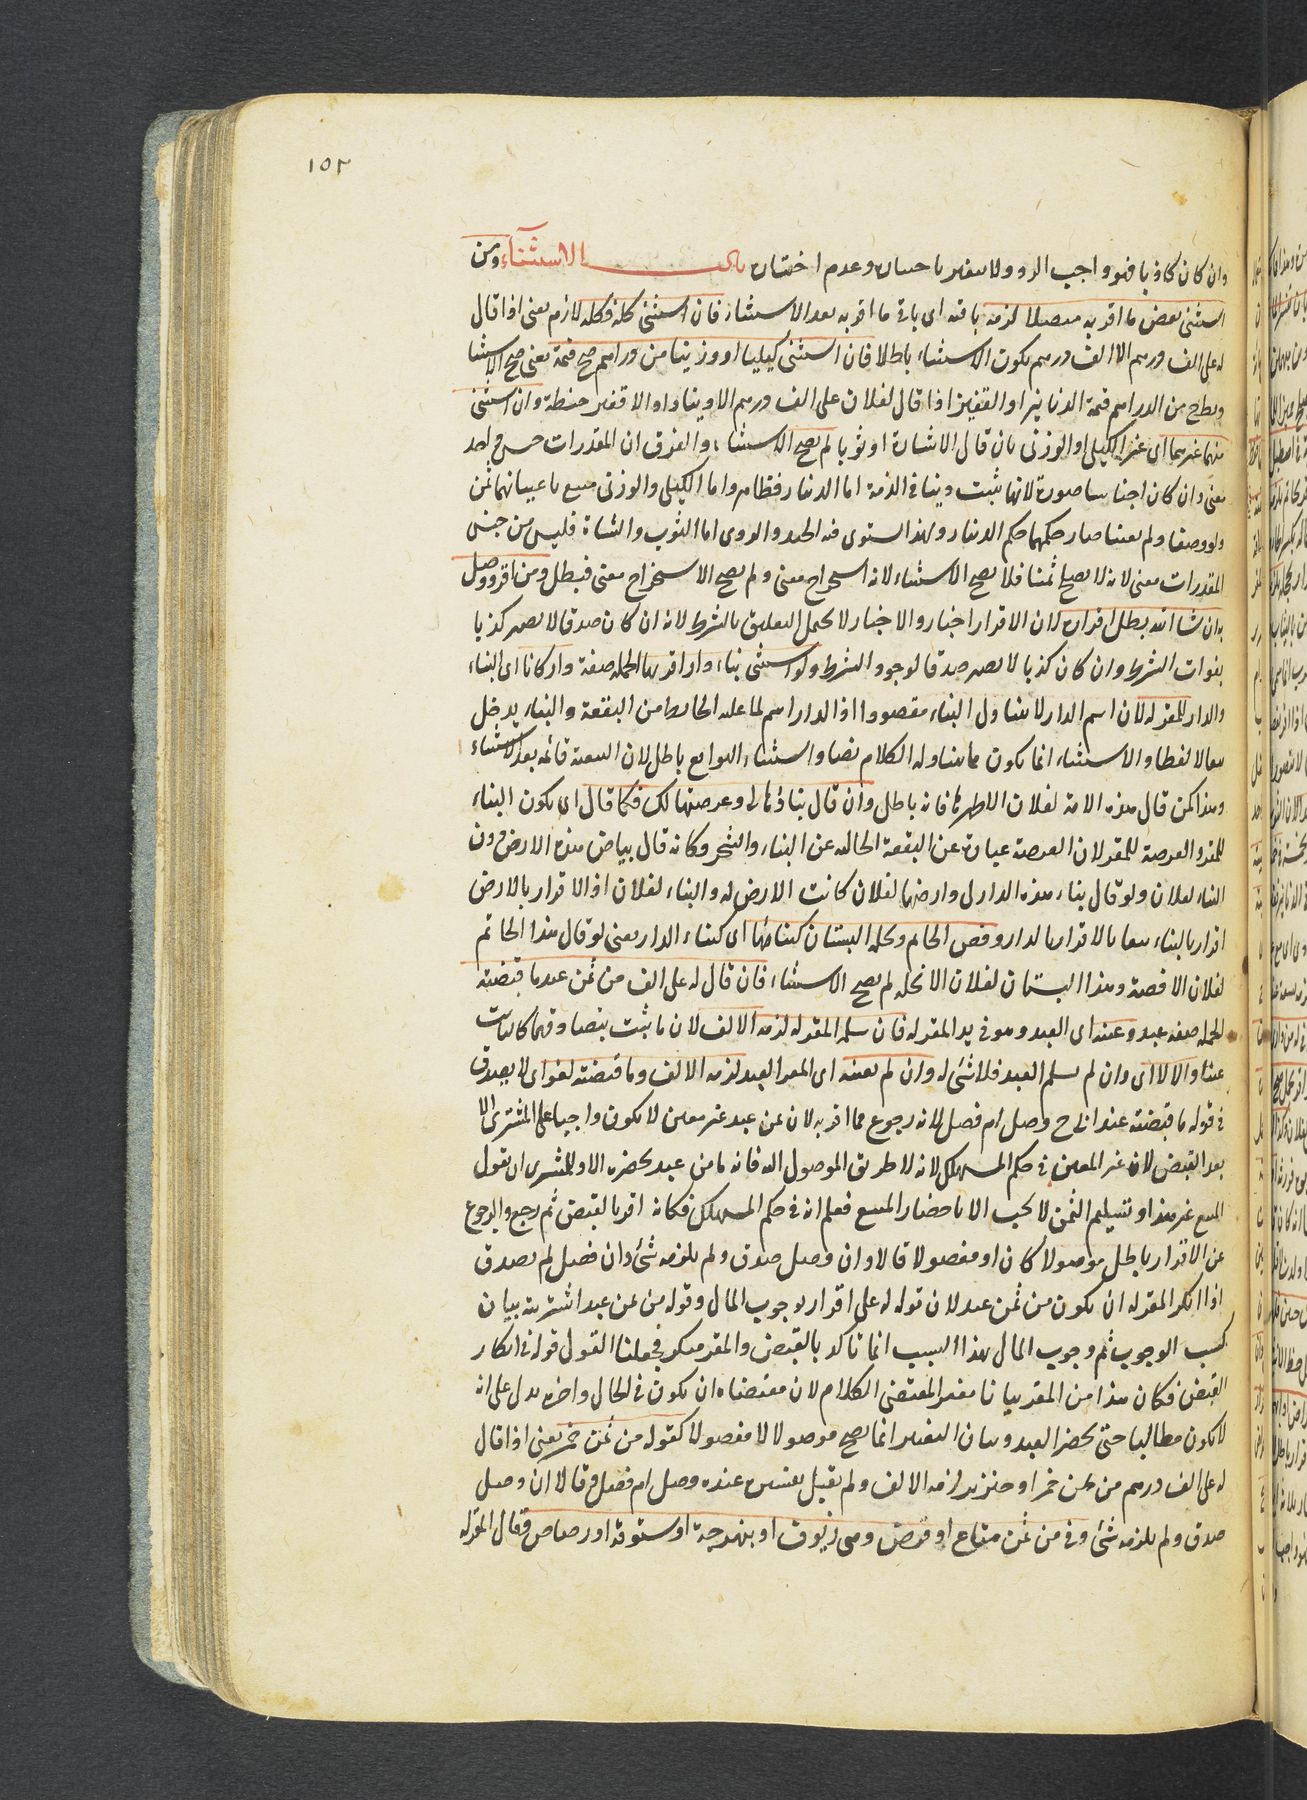 ١٥٢
وان كان كاذبا فهو واجب الرد ولا يتغير باختياره وعدم اختياره باب الاستثناء ومن
استثنى بعض ما اقر به متصلا لزمه باقيه اى باقى ما اقر به بعد الاستثناء فان استثنى كله فكله لازم يعنى اذا قال
له على الف درهم الا الف درهم يكون الاستثناء باطلا فان استثنى كيليا او وزنيا من دراهم صح قيمة يعنى صح الاستثنا
ويطرح من الدراهم قيمة الدنانير او القفيز اذا قال لفلان على الف درهم الا دينارا او الا قفيز حنطة وان استثنى
منهما غيرهما اى غير الكيلى او الوزنى بان قال الا شاة او ثوبا لم يصح الاستثناء والفرق ان المقدرات جنس واحد
معنى وان كان اجناسا صورة لانها تثبت دينا فى الذمة اما الدينار فظاهر واما الكيلى والوزنى مبيع باعيانهما ثمن
ولو وصفا ولم يعينا صار حكمهما حكم الدينار ولهذا استوى فيه الجيد والردى اما الثوب والشاة فليس من جنس
المقدرات معنى لانه لا يصلح ثمنا فلا يصح الاستثناء لانه استخراج معنى ولم يصح الاستخراج معنى فيبطل ومن اقر ووصل
بان شا الله بطل اقراره لان الاقرار اخبار والاخبار لا يحتمل التعليق بالشرط لانه ان كان صدقا لا يصير كذبا
بفوات الشرط وان كان كذبا لا يصير صدقا لوجود الشرط ولو استثنى بناء دار اقر بها الجملة صفة دار كانا اى البناء
والدار للمقر له لان اسم الدار لا يتناول البناء مقصودا اذ الدار اسم لما عليه الحائط من البقعة والبناء يدخل
تبعا لا لفظا والاستثناء انما يكون مما يتناوله الكلام نصا واستثناء التوابع باطل لان التبعية قائمة بعد الاستثناء
وهذا كمن قال هذه الامة لفلان الا طرفها فانه باطل وان قال بناؤها لى وعرصتها لك فكما قال اى يكون البناء
للمقر والعرصة للمقر لان العرصة عبارة عن البقعة الخالية عن البناء والشجر وكانه قال بياض هذه الارض دون
البناء لفلان ولو قال بناء هذه الدار لى وارضها لفلان كانت الارض له والبناء لفلان اذ الاقرار بالارض
اقرار بالبناء تبعا بالاقرار بالدار وفص الخاتم ونخلة البستان كبنائها اى كبناء الدار يعنى لو قال هذا الخاتم
لفلان الا فصه وهذا البستان لفلان الا نخله لم يصح الاستثناء فان قال له على الف من ثمن عبد ما قبضته
الجملة صفة عبد وعينه اى العبد وهو فى يد المقر له فان سلمه المقر له لزمه الالف لان ما ثبت بتصادقهما كالثابت
عيانا والا لا اى وان لم يسلم العبد فلا شئ له وان لم يعينه اى المقر العبد لزمه الالف وما قبضته لغو اى لا يصدق
فى قوله ما قبضته عند ابى ح وصل ام فصل لانه رجوع عما اقر به لان ثمن عبد غير معين لا يكون واجبا على المشترى الا
بعد القبض لان غير المعين فى حكم المستهلك لانه لا طريق للوصول اليه فانه ما من عبد يحضره الا وللمشترى ان يقول
المبيع غير هذا وتسليم الثمن لا يجب الا باحضار المبيع فعلم انه فى حكم المستهلك فكانه اقر بالقبض ثم رجع والرجوع
عن الاقرار باطل موصولا كان او مفصولا قالا وان وصل صدق ولم يلزمه شئ وان فصل لم يصدق
اذا انكر المقر له ان يكون من ثمن عبد لان قوله له على اقرار بوجوب المال وقوله من ثمن عبد اشتريته بيان
لسبب الوجوب ثم وجوب المال بهذا السبب انما تاكد بالقبض والمقر منكر فجعلنا القول قوله فى انكار
القبض فكان هذا من المقر بيانا مغيرا لمقتضى الكلام لان مقتضاه ان يكون فى الحال واخره يدل على انه
لا يكون مطالبا حتى يحضر العبد وبيان التغيير انما يصح موصولا لا مفصولا كقوله من ثمن خمر يعنى اذا قال
له على الف درهم من ثمن خمر او خنزير لزمه الالف ولم يقبل تفسيره عنده وصل ام فصل وقالا ان وصل
صدق ولم يلزمه شئ وفى من ثمن متاع او قرض وهى زيوف او بنهرجة او ستوقة او رصاص وقال المقر له